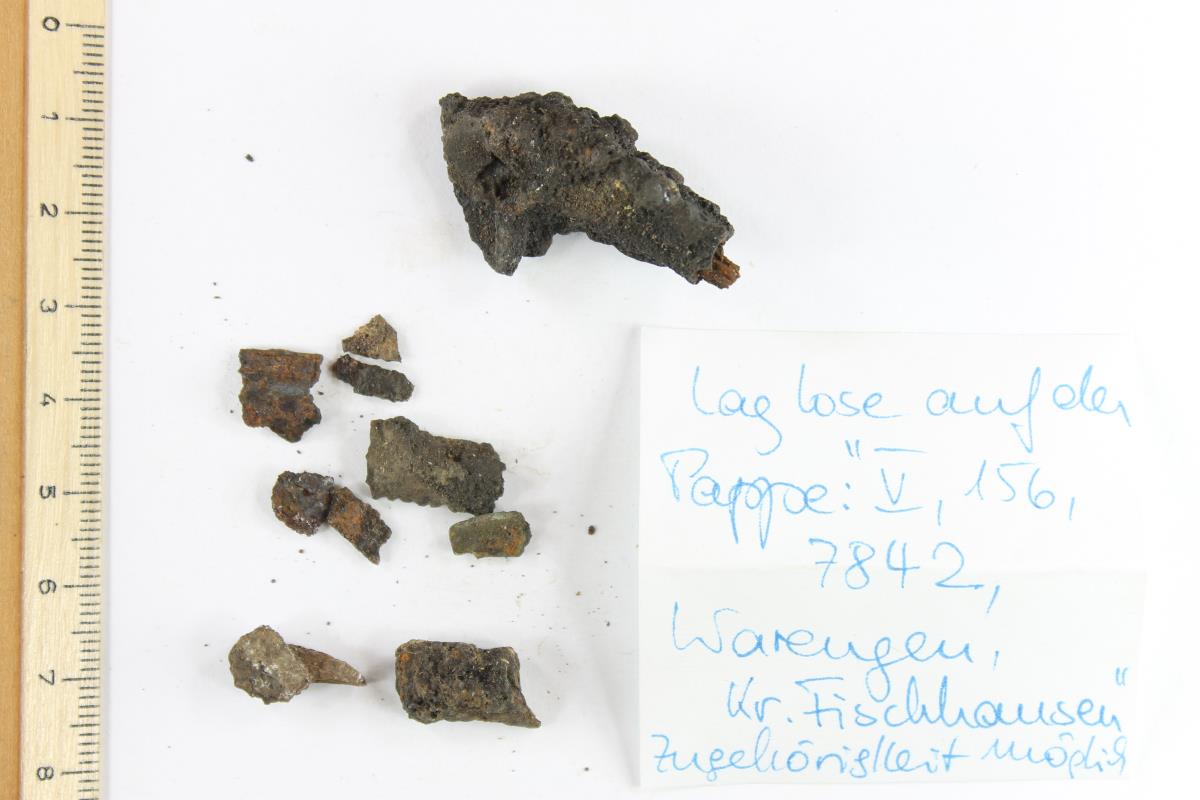 0
1
2
3
4
5
6
7
8
Lag lose auf der
Pappe: "V, 156,
7842,
Warengen,
Kr. Fischhausen"
Zugehörigkeit möglich